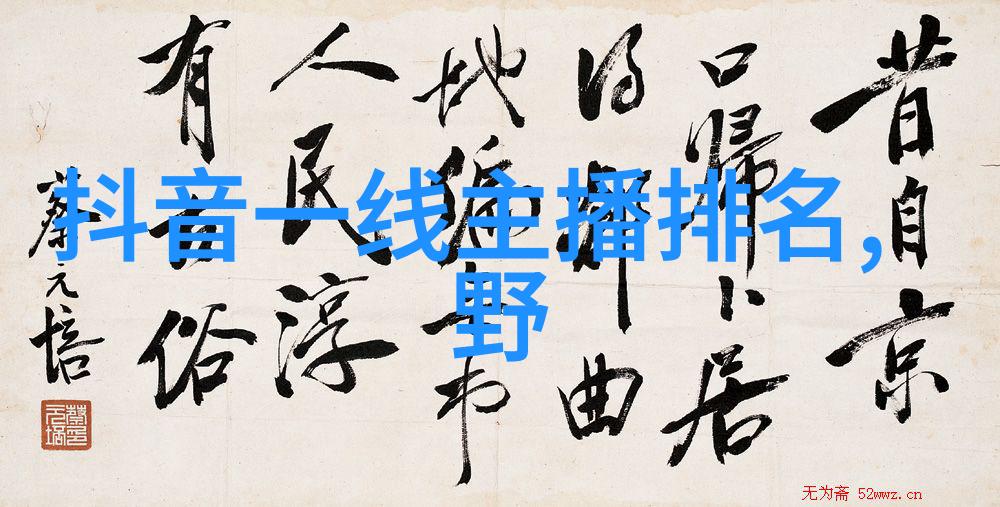 抖音一线主播排名,
野
昔自京
口歸卜居
得鄉曲
地偏
人民淳
有古俗
蔡元培
无为斋 52wwz.cn